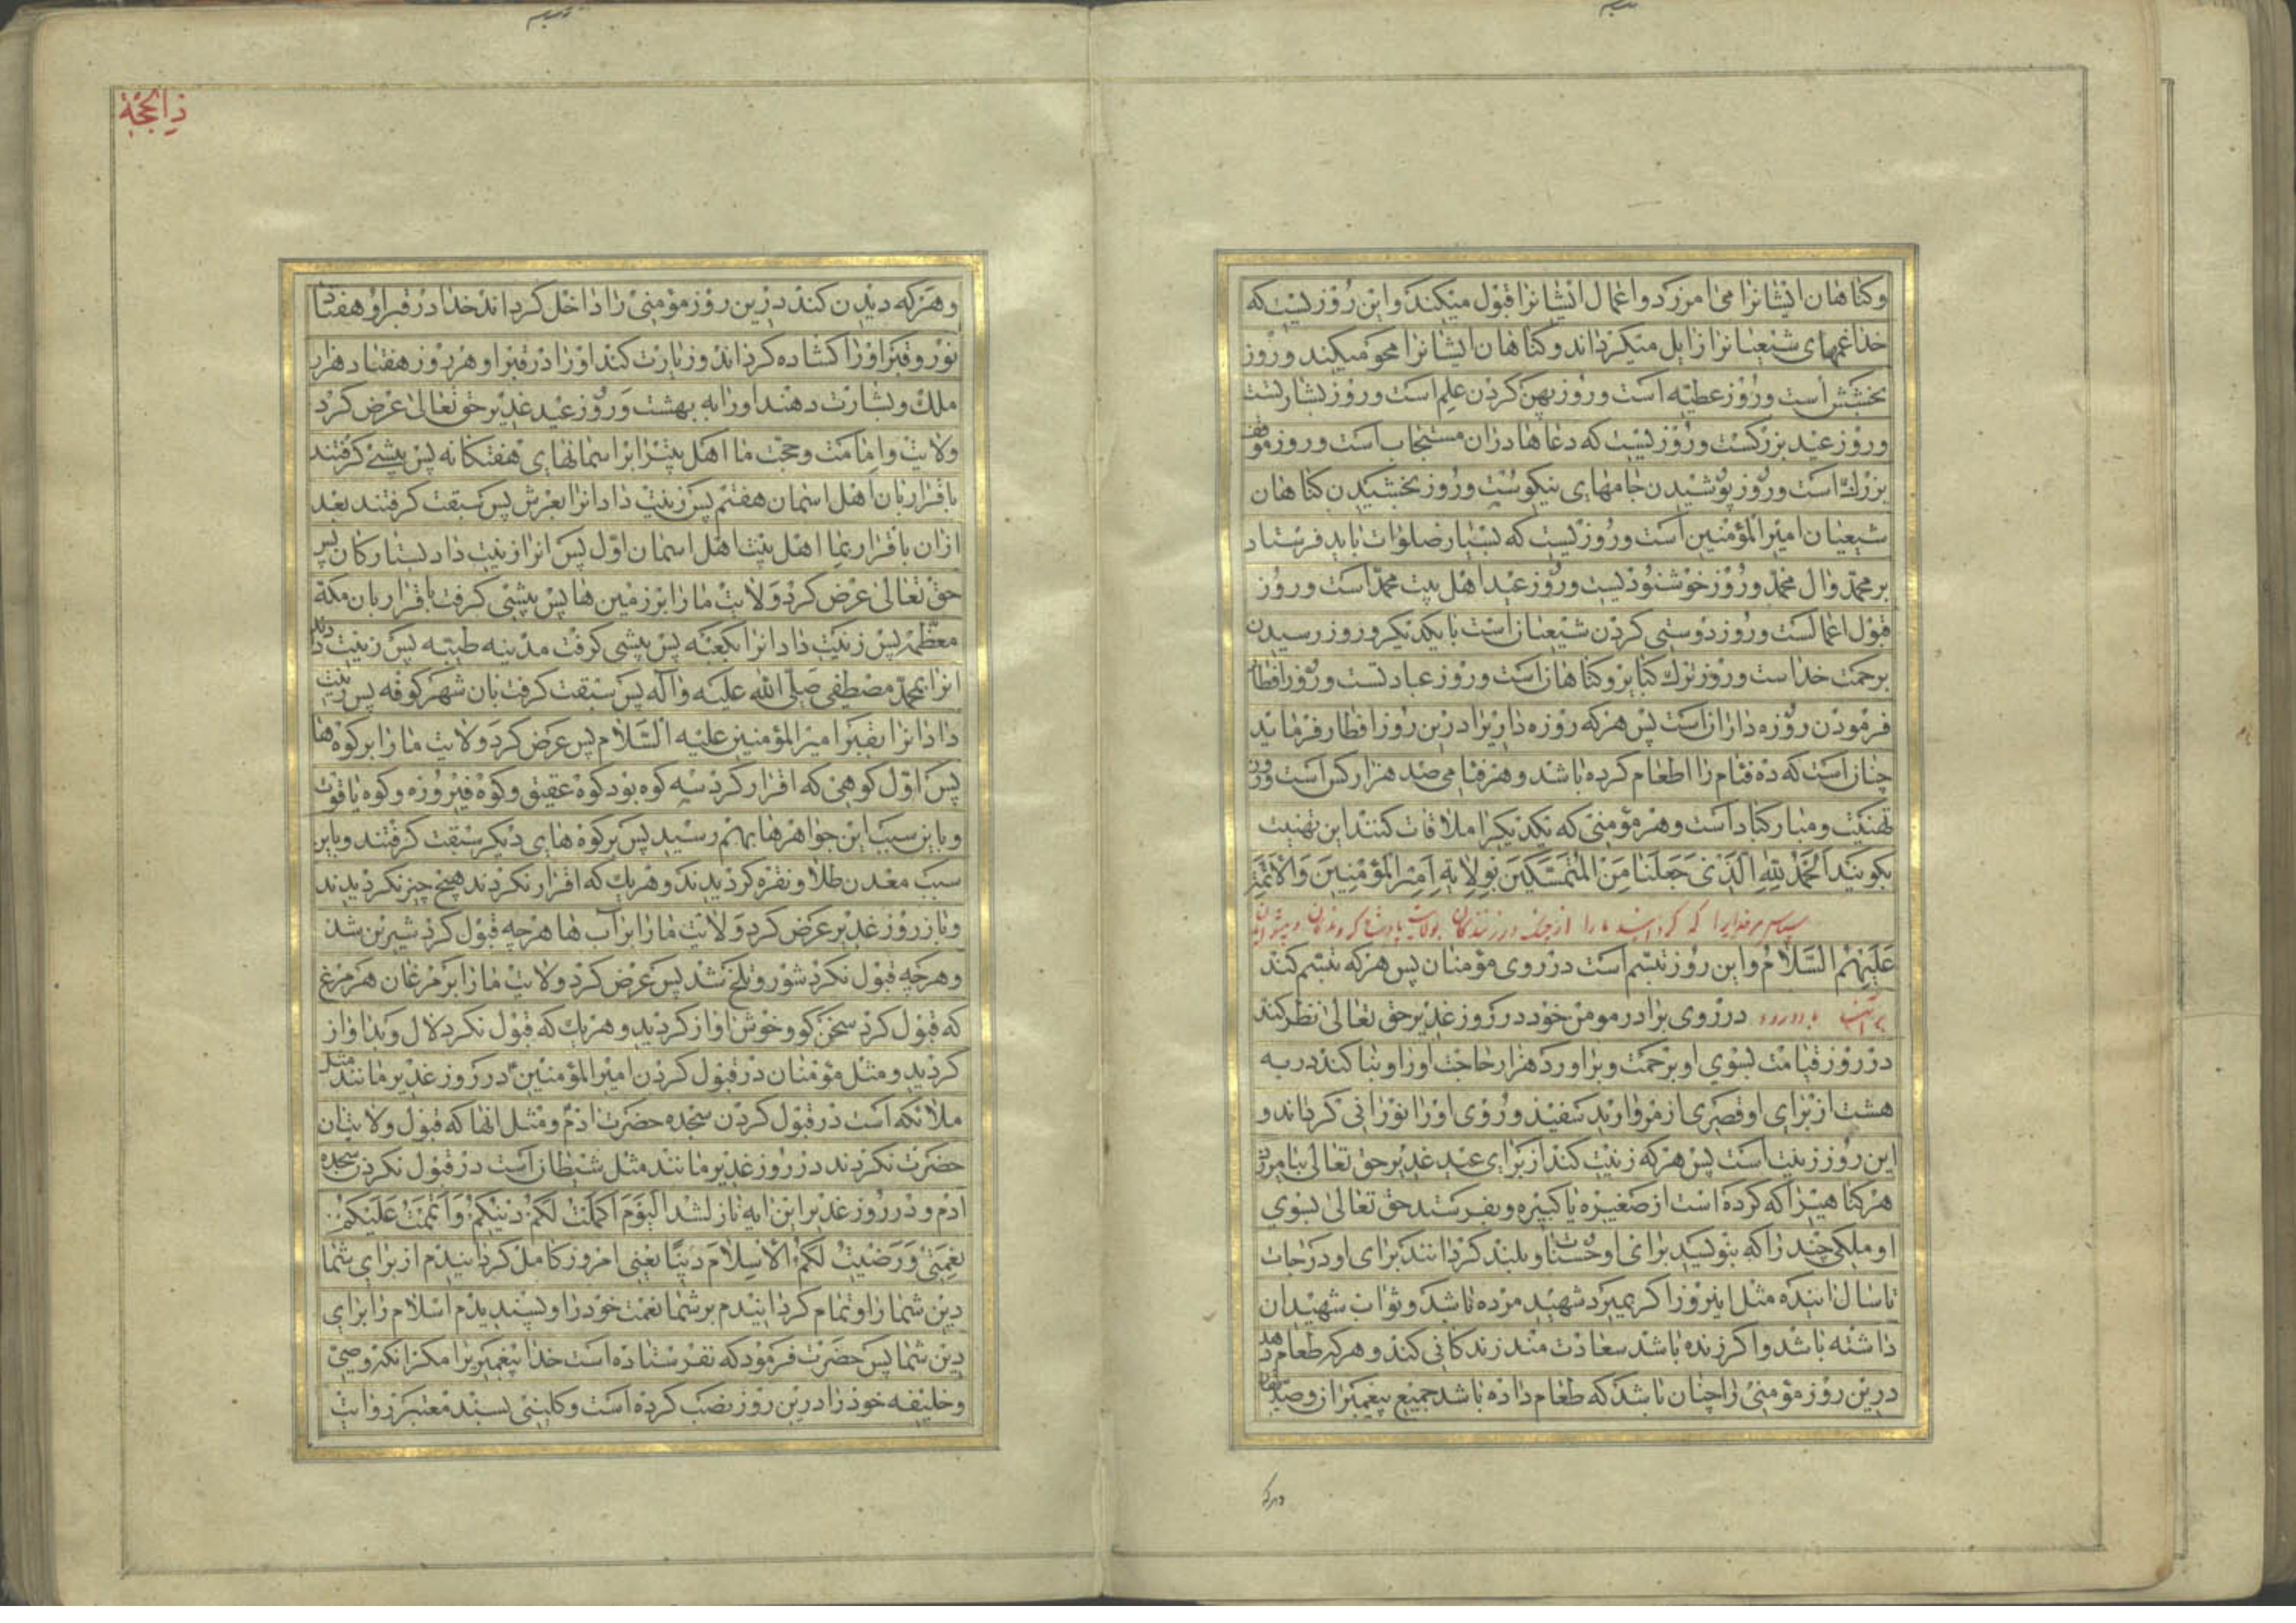 وکناهان ایشانرا می امرزد و اعمال ایشانرا قبول میکند و این روزیست که
خدا غمهای شیعیانرا زایل میکرداند و کناهان ایشانرا محو میکند و روز
بخشش است و روز عطیه است و روز پهن کردن علم است و روز بشارتست
و روز عید بزرکست و روزیست که دعاها دران مستجاب است و روز موقف
بزرک است و روز پوشیدن جامهای نیکوست و روز بخشیدن کناهان
شیعیان امیرالمؤمنین است و روزیست که بسیار صلوات باید فرستاد
بر محمد وال محمد و روز خوشنودیست و روز عید اهل بیت محمد است و روز
قبول اعمالست و روز دوستی کردن شیعیانست با یکدیکر و روز رسیدن
برحمت خداست و روز ترک کبایر و کناهانست و روز عبادتست و روز افطار
فرمودن روزه دارانست پس هرکه روزه داریرا درین روز افطار فرماید
چنانست که ده فئام را اطعام کرده باشد و هر فئامی صد هزار کس است و روز
تهنیت و مبارکباد است و هر مؤمنی که یکدیکرا ملاقات کنند این تهنیت
بکویند اَلحَمدُ لِلّهِ الَّذی جَعَلَنا مِنَ المُتَمَسِّکینَ بِوِلایَةِ اَمیرِ المُؤمِنینَ وَالاَئِمَّةِ
سپاس مر خدایرا که کردانید ما را از چنک درزنندکان بولایت پادشاه کروندکان و پیشوایان
عَلَیهِمُ السَّلامُ و این روز تبسم است در روی مؤمنان پس هرکه تبسم کند
در روی برادر مومن خود در روز غدیر حق تعالی نظر کند
در روز قیامت بسوی او برحمت و براورد هزار حاجت او را و بنا کند در به
هشت از برای او قصری از مروارید سفید و روی او را نورانی کرداند و
این روز زینت است پس هرکه زینت کند از برای عید غدیر حق تعالی بیامرزد
هر کناهیرا که کرده است از صغیره یا کبیره و بفرستد حق تعالی بسوی
او ملکی چند را که بنویسید برای او حسنات و بلند کردانند برای او درجات
تا سال اینده مثل اینروز اکر بمیرد شهید مرده باشد و ثواب شهیدان
داشته باشد و اکر زنده باشد سعادت مند زندکانی کند و هرکه طعام دهد
درین روز مؤمنی را چنان باشد که طعام داده باشد جمیع پیغمبران و صدیقان
ذالحجة
و هرکه دیدن کند درین روز مؤمنی را داخل کرداند خدا در قبر او هفتاد
نور و قبر او را کشاده کرداند و زیارت کند او را در قبر او هر روز هفتاد هزار
ملک و بشارت دهند او را به بهشت و روز عید غدیر حق تعالی عرض کرد
ولایت و امامت و محبت ما اهل بیترا بر اسمانهای هفتکانه پس پیشی کرفتند
باقرار بان اهل اسمان هفتم پس زینت داد انرا بعرش پس سبقت کرفتند بعد
ازان باقرار بما اهل بیت اهل اسمان اول پس انرا زینت داد بستارکان پس
حق تعالی عرض کرد ولایت ما را بر زمین ها پس پیشی کرفت باقرار بان مکه
معظمه پس زینت داد انرا بکعبه پس پیشی کرفت مدینه طیبه پس زینت داد
انرا بمحمد مصطفی صلی الله علیه و آله پس سبقت کرفت بان شهر کوفه پس زینت
داد انرا بقبر امیرالمؤمنین علیه السلام پس عرض کرد ولایت ما را بر کوه ها
پس اول کوهی که اقرار کرد سه کوه بود کوه عقیق و کوه فیروزه و کوه یاقوت
و باین سبب این جواهرها بهم رسید پس بر کوه های دیکر سبقت کرفتند و باین
سبب معدن طلا و نقره کردیدند و هریک که اقرار نکردند هیچ چیز نکردیدند
و باز روز غدیر عرض کرد ولایت ما را بر آب ها هرچه قبول کرد شیرین شد
و هرچه قبول نکرد شور و تلخ شد پس عرض کرد ولایت ما را بر مرغان هر مرغ
که قبول کرد سخن کو و خوش اواز کردید و هریک که قبول نکرد لال و بداواز
کردید و مثل مؤمنان در قبول کردن امیرالمؤمنین در روز غدیر مانند مثل
ملائکه است در قبول کردن سجده حضرت ادم و مثل انها که قبول ولایت ان
حضرت نکردند در روز غدیر مانند مثل شیطانست در قبول نکردن سجده
ادم و در روز غدیر این ایه نازل شد اَلیَومَ اَکمَلتُ لَکُم دینَکُم وَاَتمَمتُ عَلَیکُم
نِعمَتی وَرَضیتُ لَکُمُ الاِسلامَ دینًا یعنی امروز کامل کردانیدم از برای شما
دین شما را و تمام کردانیدم بر شما نعمت خود را و پسندیدم اسلام را برای
دین شما پس حضرت فرمود که نفرستاده است خدا پیغمبریرا مکر انکه وصی
و خلیفه خود را درین روز نصب کرده است و کلینی بسند معتبر روایت